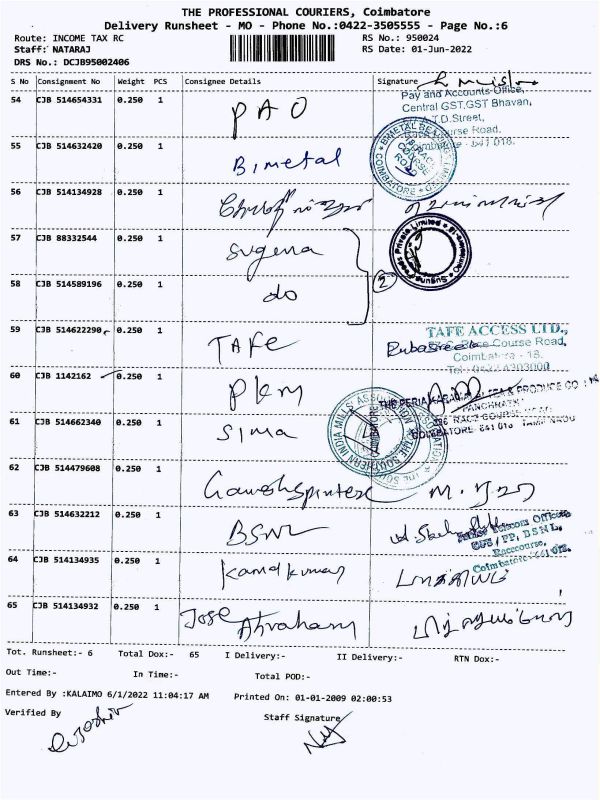 THE PROFESSIONAL COURIERS, Coimbatore
Delivery Runsheet - MO - Phone No.:0422-3505555 - Page No.:6
Route: INCOME TAX RC
RS No.: 950024
Staff: NATARAJ
RS Date: 01-Jun-2022
DRS No.: DCJB95002406
S No Consignment No Weight PCS Consignee Details Signature
Pay and Accounts Office,
Central GST,GST Bhavan,
54 CJB 514654331 0.250 1 PAO
A.T.D.Street,
Race Course Road,
Coimbatore - 641 018.
55 CJB 514632420 0.250 1 Bimetal
56 CJB 514134928 0.250 1
57 CJB 88332544 0.250 1 Suguna
2
58 CJB 514589196 0.250 1 do
59 CJB 514622290 0.250 1 TAFE
TAFE ACCESS LTD.,
Race Course Road,
Coimbatore - 18.
60 CJB 1142162 0.250 1 PKM
PANCHRATN
RACE COURSE ROAD
COIMBATORE- 641 018 TAMIL NADU
61 CJB 514662340 0.250 1 SIMA
THE SOUTHERN INDIA MILLS' ASSOCIATION
62 CJB 514479608 0.250 1 Ganeshspintex
63 CJB 514632212 0.250 1 BSNL
Telecom Officer
BSNL,
Racecourse,
Coimbatore-641 018.
64 CJB 514134935 0.250 1 Kamalkumar
65 CJB 514134932 0.250 1 Jose Abraham
Tot. Runsheet:- 6 Total Dox:- 65 I Delivery:- II Delivery:- RTN Dox:-
Out Time:- In Time:- Total POD:-
Entered By :KALAIMO 6/1/2022 11:04:17 AM Printed On: 01-01-2009 02:00:53
Verified By
Staff Signature